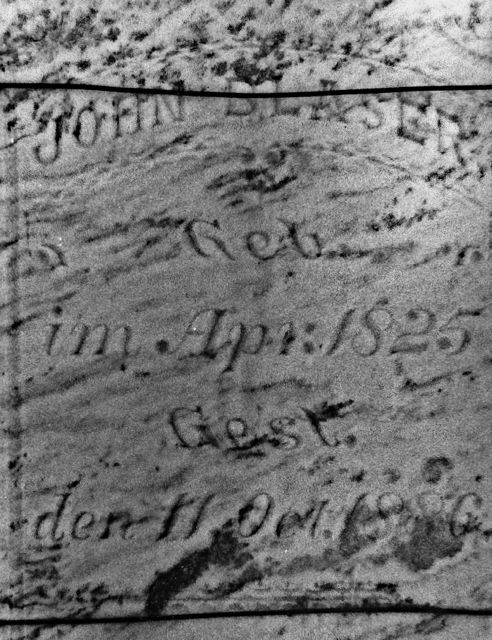 JOHN BLASER
Geb.
im Apr: 1825
Gest.
den 11 Oct. 1886.